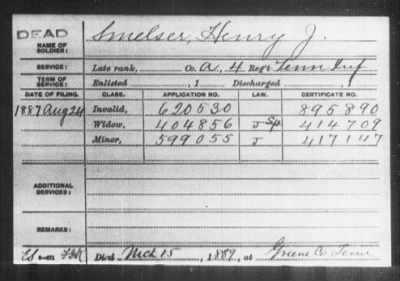 DEAD
NAME OF SOLDIER: Smelser, Henry J.
SERVICE: Late rank, Co. A, 4 Reg't Tenn Inf
TERM OF SERVICE: Enlisted , 1 Discharged , 1
DATE OF FILING. CLASS. APPLICATION NO. LAW. CERTIFICATE NO.
1887 Aug 24 Invalid, 620530 895890
Widow, 404856 J Sp. 414709
Minor, 599055 J 417147
ADDITIONAL SERVICES:
REMARKS:
Died Mch 15, 1889, at Greene Co Tenn